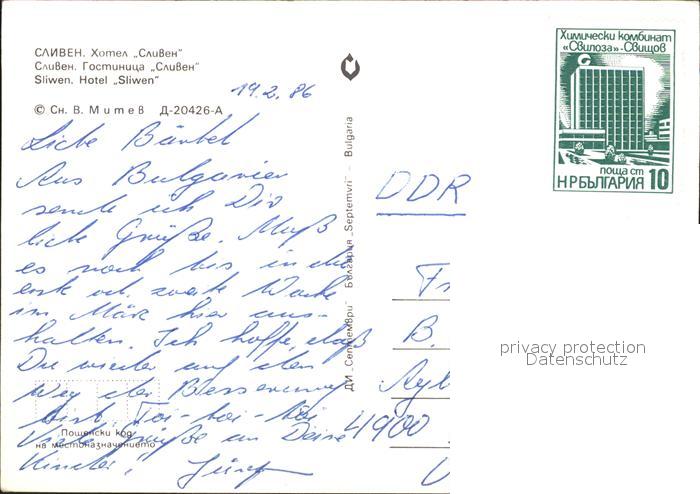 СЛИВЕН. Хотел „Сливен“
Сливен. Гостиница „Сливен“
Sliwen. Hotel „Sliwen“
© Сн. В. Митев Д-20426-А
19.2.86
Liebe Bärbel
Aus Bulgarien
sende ich Dir
liebe Grüße. Muß
es noch bis in die
erste od. zweite Woche
im März hier aus-
halten. Ich hoffe, daß
Du wieder auf dem
Weg der Besserung
bist. Toi-toi-toi
Viele Grüße an Deine
Kinder,
Пощенски код
на местоназначението
ДИ „Септември“ България „Septemvri“ Bulgaria
Химически комбинат
«Свилоза»-Свищов
поща ст
НРБЪЛГАРИЯ 10
DDR
Fr
B.
4900
privacy protection
Datenschutz